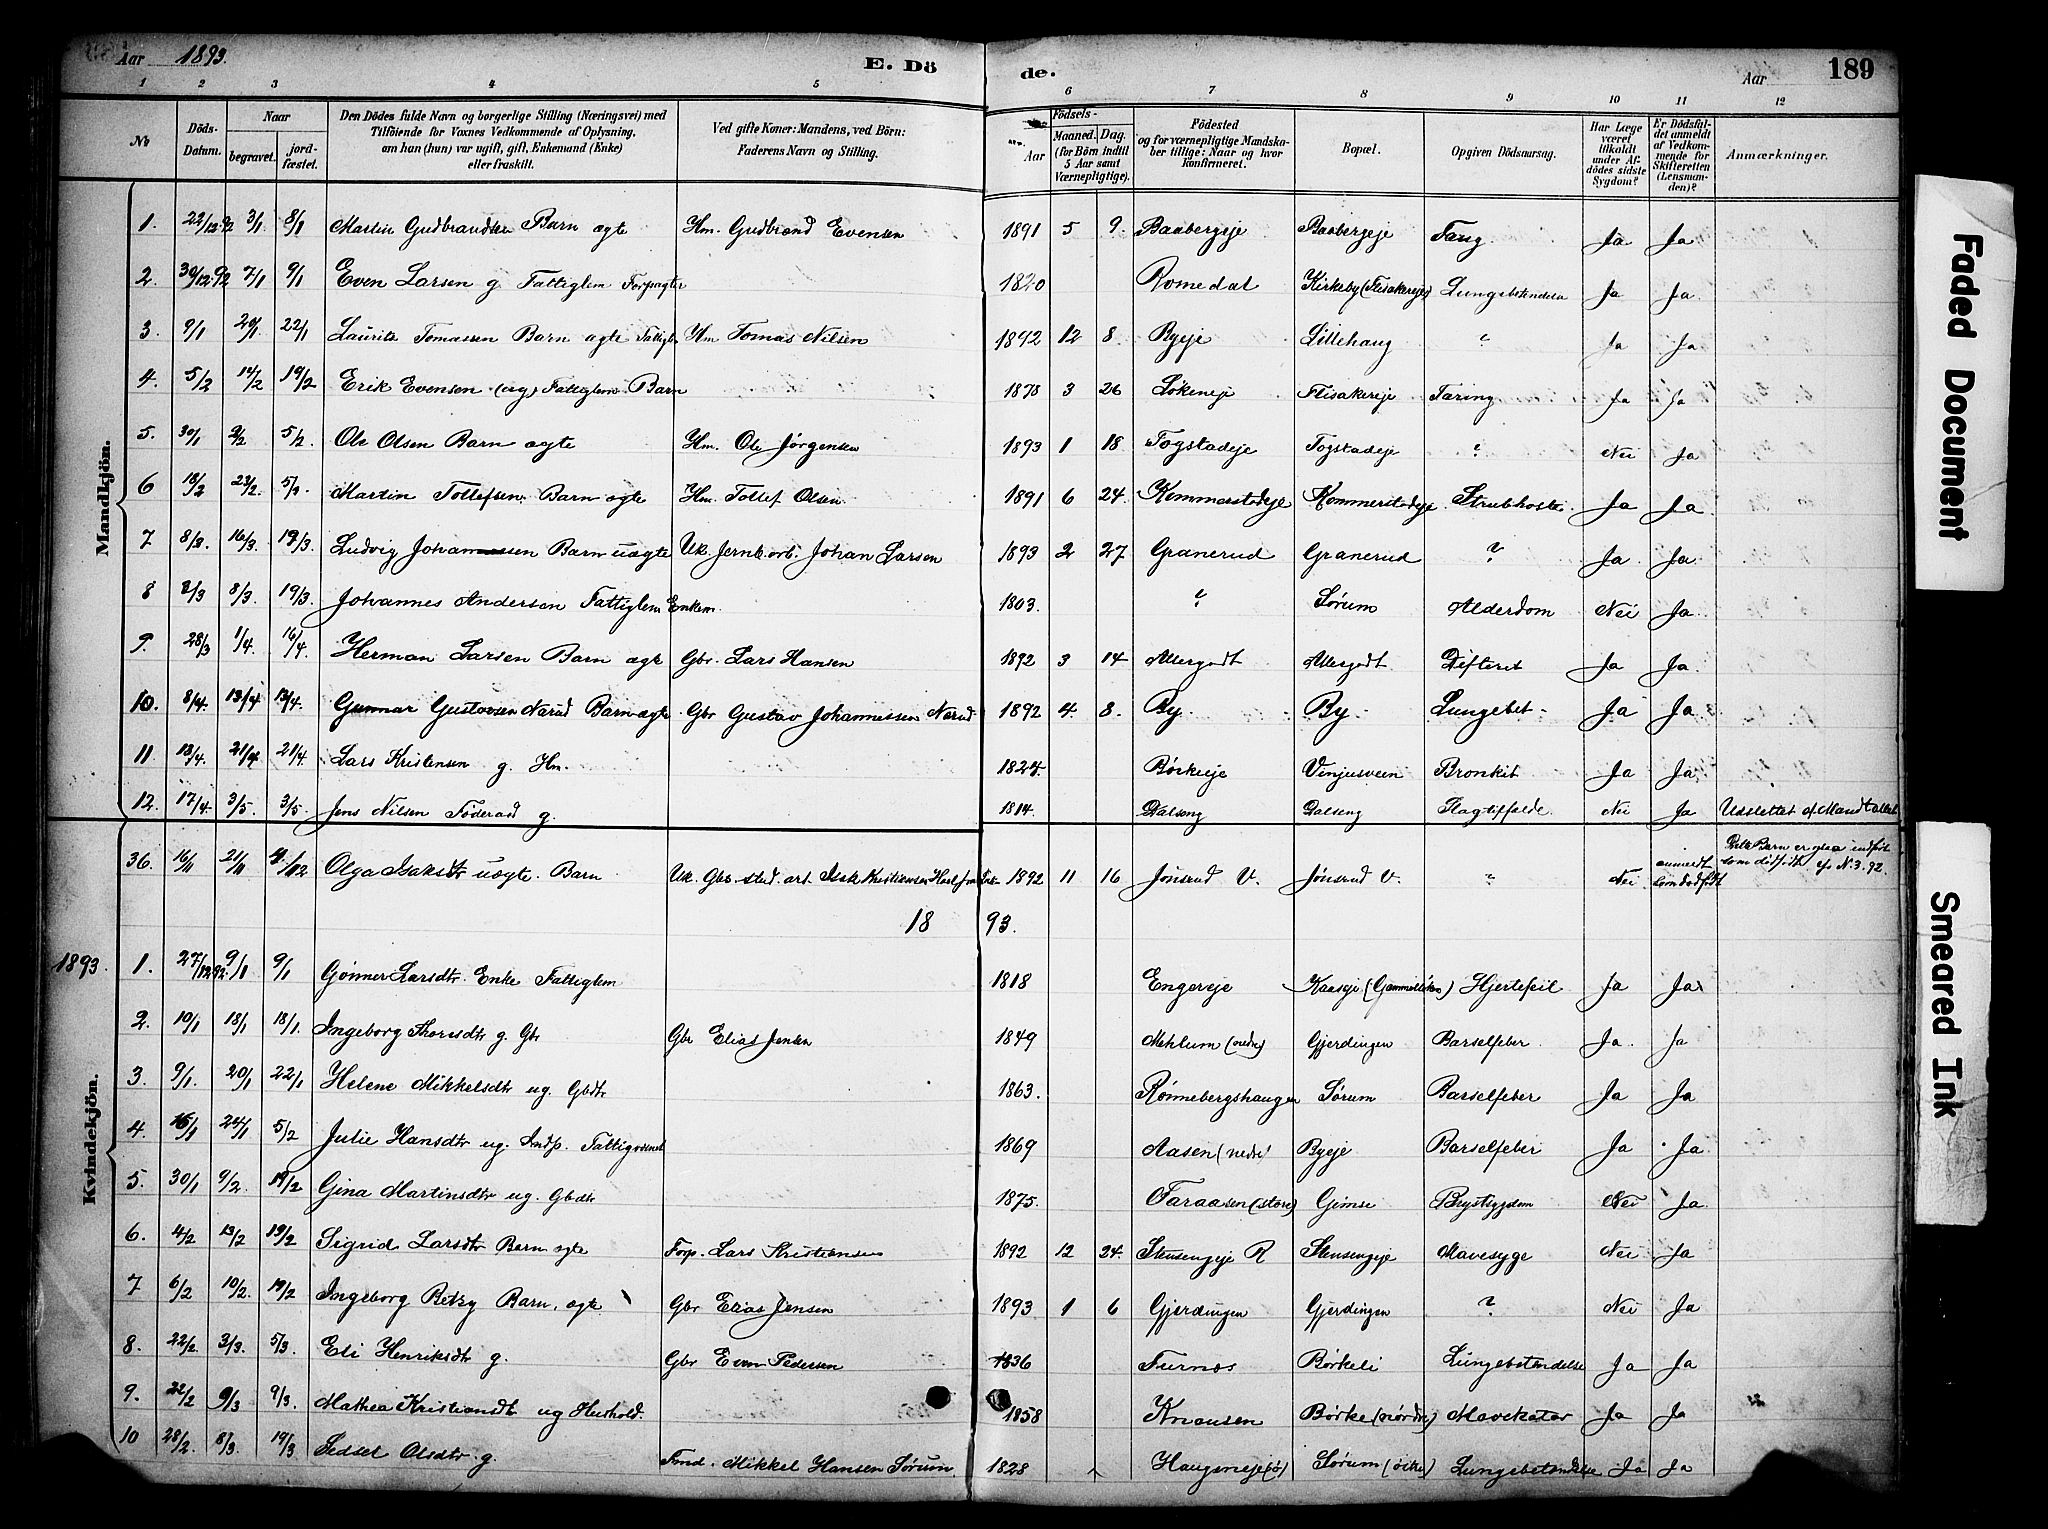 Aar 1893. E. Dö de. Aar 189
1 2 3 4 5 6 7 8 9 10 11 12
No
Döds-Datum.
Naar begravet. jordfæstet.
Den Dödes fulde Navn og borgerlige Stilling (Næringsvei) med Tilföiende for Voxnes Vedkommende af Oplysning, om han (hun) var ugift, gift, Enkemand (Enke) eller fraskilt.
Ved gifte Koner: Mandens, ved Börn: Faderens Navn og Stilling.
Födsels- Aar Maaned. Dag. (for Börn indtil 5 Aar samt Værnepligtige).
Födested og for værnepligtige Mandskaber tillige: Naar og hvor konfirmeret.
Bopæl.
Opgiven Dödsaarsag.
Har Læge været tilkaldt under Afdödes sidste Sygdom?
Er Dödsfaldet anmeldt af Vedkommende for Skifteretten (Lensmanden)?
Anmærkninger.
Mandkjön.
1. 22/12 92 3/1 8/1 Martin Gudbrandsen Barn ægte Hm. Gudbrand Evensen 1891 5 9. Baabergeje Baabergeje Tæng. Ja Ja
2. 30/12 92 7/1 9/1 Even Larsen g. Fattiglem Forpagter 1820 Romedal Kirkeby (Flisakereje) Lungebetændelse Ja Ja
3. 9/1 20/1 22/1 Laurits Tomassen Barn ægte Fattigl. Hm Tomas Nilsen 1892 12 8 Byeje Lillehaug ? Ja Ja
4. 5/2 14/2 19/2 Erik Evensen (ug) Fattiglem Barn 1878 3 26 Løkeneje Flisakereje Tæring Ja Ja
5. 30/1 2/2 5/2 Ole Olsen Barn ægte Hm. Ole Jørgensen 1893 1 18 Togstadeje Togstadeje ? Nei Ja
6 18/2 23/2. 5/3. Martin Tollefsen Barn ægte Hm. Tollef Olsen 1891 6 24. Kommerstadeje Kommerstadeje Strubhoste Ja Ja
7 8/3. 16/3. 19/3 Ludvig Johannessen Barn uægte Uk. Jernb. arb. Johan Larsen 1893 2 27 Granerud Granerud ? Ja Ja
8 2/3 8/3. 19/3. Johannes Andersen Fattiglem Enkem. 1803. ? Sørum Alderdom Nei Ja
9. 28/3 1/4. 16/4. Herman Larsen Barn ægte Gbr. Lars Hansen 1892 3 14 Allergodt Allergodt Difterit Ja Ja
10. 8/4. 13/4 13/4. Gunnar Gustavsen Narud Barn ægte Gbr Gustav Johannessen Narud 1892 4. 8. By By Lungebet. Ja Ja
11 13/4. 21/4 21/4. Lars Kristensen g. Hm. 1824. Børkeeje Vinjusveen Bronkit Ja Ja
12. 17/4. 3/5. 3/5. Jens Nilsen Føderaad g. 1814. Dalseng Dalseng Slagtilfælde Nei Ja Udslettet af Mandtallet
36. 16/11 21/11 4/12 Olga Isaksdtr uægte Barn Uk. Gbr. sted. arb. Isak Kristiansen 1892 11 16 Jønsrud V. Jønsrud V. ? Nei anmeldt som dødfødt Dette Barn er ogsaa indført som dødfødt. cfr N. 3. 92.
18 93.
1893.
Kvindekjön.
1. 27/12 92 9/1 9/1 Gønner Larsdtr. Enke Fattiglem 1818 Engereje Kaaseje (Gammelløken) Hjertefeil Ja Ja
2. 10/1 18/1 18/1. Ingeborg Thorsdtr g. Gbr Gbr Elias Jensen 1849 Mehlum (nedre) Gjerdingen Barselfeber Ja. Ja
3. 9/1. 20/1 22/1 Helene Mikkelsdtr ug. Gbdtr 1863. Rønnebergshaugen Sørum Barselfeber Ja Ja
4. 15/1 24/1 5/2 Julie Hansdtr ug. Indp. Fattigvæsenet 1869 Aasen (nedre) Byeje Barselfeber Ja Ja.
5. 30/1 9/2. 19/2 Gina Martinsdtr ug. Gbdtr 1875. Faraasen (store) Gimse Brystsygdom Nei Ja.
6. 4/2 13/2 19/2 Sigrid Larsdtr Barn ægte Forp. Lars Kristiansen 1892 12 24. Stensengeje R Stensengeje Mavesyge Nei Ja
7 6/2 10/2. 19/2 Ingeborg Betzy Barn. ægte Gbr Elias Jensen 1893 1 6 Gjerdingen Gjerdingen ? Nei Ja
8. 22/2. 3/3. 5/3. Eli Henriksdtr g. Gbr Even Pedersen 1836 Furnes Børkeli Lungebetændelse Ja Ja
9. 22/2 9/3 9/3. Mathea Kristiansdtr ug Hushold. 1858 Knausen Børke (nordre) Mavekatar Ja Ja
10 28/2. 8/3. 19/3 Sidsel Olsdtr. g. Fmd. Mikkel Hansen Sørum 1828 Haugsneje (ø) Sørum (østre) Lungebetændelse Ja Ja
Faded Document
Smeared Ink